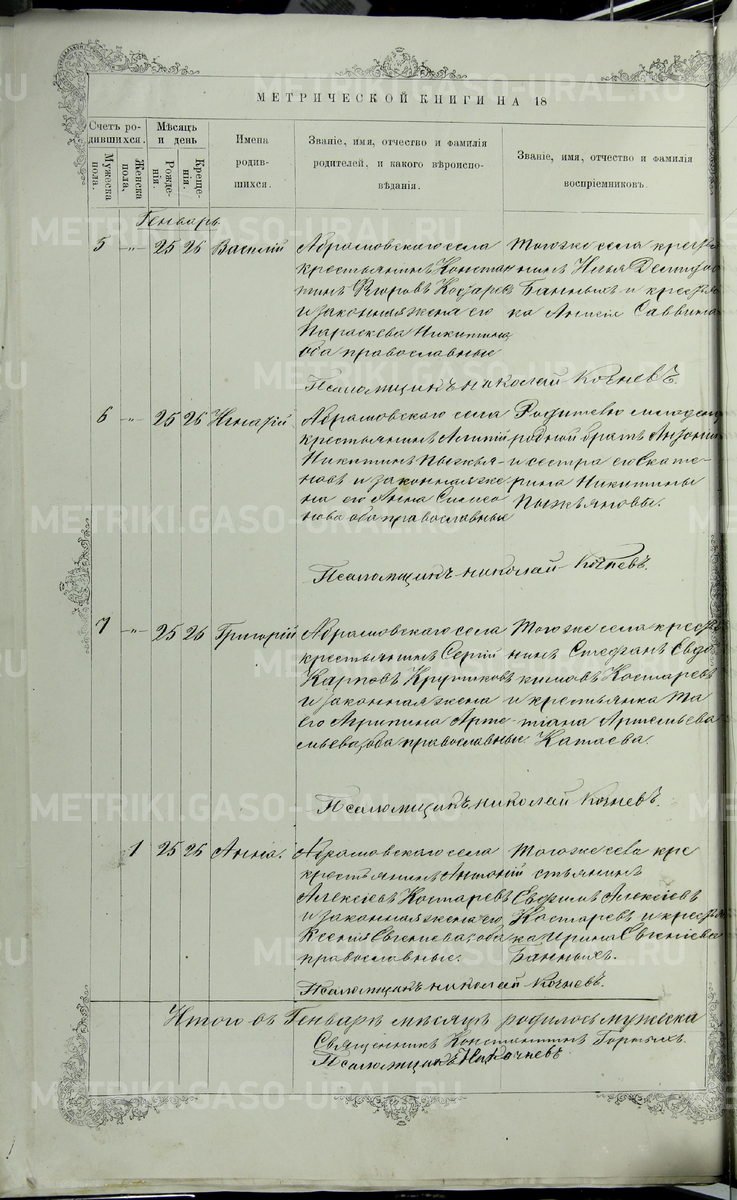 МЕТРИЧЕСКОЙ КНИГИ НА 18
Счетъ родившихся.
Мужеска пола.
Женска пола.
Мѣсяцъ и день
Рожденія.
Крещенія.
Имена родившихся.
Званіе, имя, отчество и фамилія родителей, и какого вѣроисповѣданія.
Званіе, имя, отчество и фамилія воспріемниковъ.
Генварь
5 -"- 25 26 Василій
Абрамовскаго села
крестьянинъ Констан
тинъ Егоровъ Костарев
и законная жена его
Параскева Никитина
оба православные
Тогоже села крестья
нинъ Илья
Банныхъ и крестьян
ка Анисія Саввина
Псаломщикъ Николай Кочневъ.
6 -"- 25 26 Игнатій
Абрамовскаго села
крестьянинъ
Никитинъ Пыжья-
новъ и законная же
на его Анна Симео
нова оба православныя
Родителю младенца
родной братъ Антоній
и сестра его Екате-
рина Никитины
Пыжьяновы.
Псаломщикъ Николай Кочневъ.
7 -"- 25 26 Григорій
Абрамовскаго села
крестьянинъ Сергій
Карповъ Крутиковъ
и законная жена
его Агрипина Арте-
мьева, оба православные
Тогоже села крестья
нинъ Стефанъ Евдо
кимовъ Костаревъ
и крестьянка Та
тіана Артемьева
Катаева.
Псаломщикъ Николай Кочневъ.
1 25 26 Анна.
Абрамовскаго села
крестьянинъ Антоній
Алексіевъ Костаревъ
и законная жена его
Ксенія Евгеніева, оба
православные.
Тогоже села кре
стьянинъ
Евфимъ Алексіевъ
Костаревъ и крестьян
ка Ирина Евгеніева
Банныхъ.
Псаломщикъ Николай Кочневъ.
Итого въ Генварѣ мѣсяцѣ родилось мужеска
Священникъ Константинъ
Псаломщикъ Н. Кочневъ
METRIKI.GASO-URAL.RU